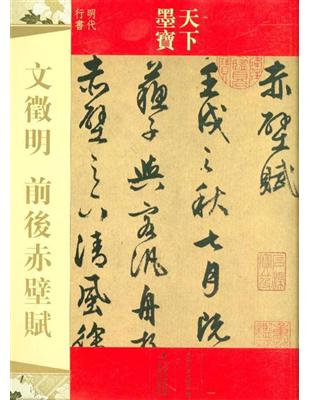 天下
墨寶
明代
行書
文徵明 前後赤壁賦
赤壁賦
壬戌之秋七月既
蘇子與客汎舟於
赤壁之下清風徐